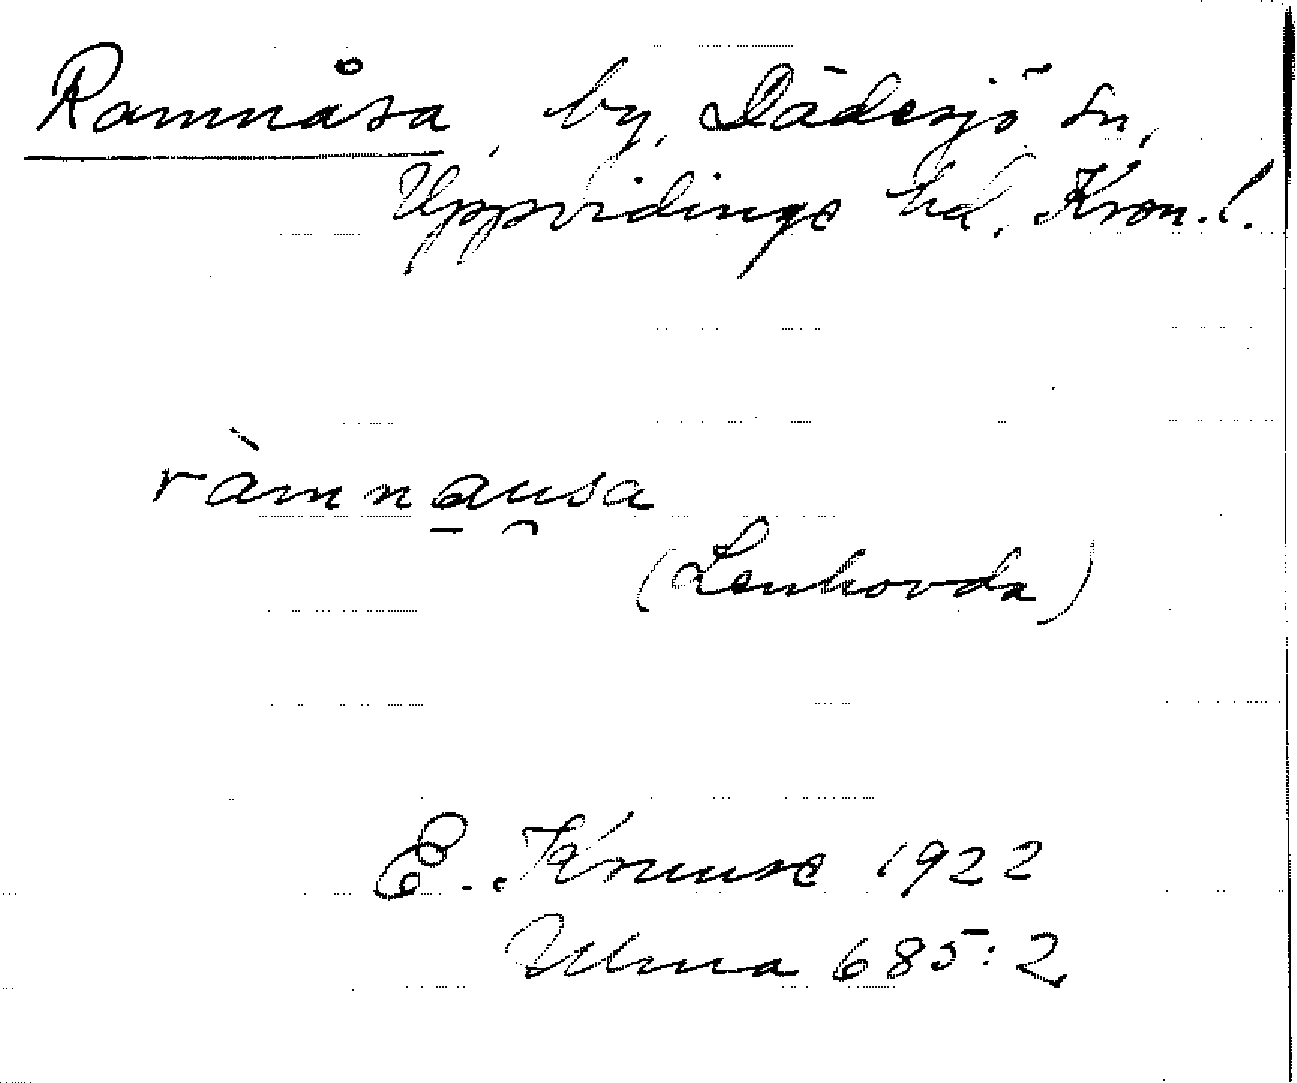 Ramnåsa, by, Dädesjö sn,
Uppvidinge hd, Kron. l.
ràmna̱u̯sa
(Lenhovda)
E. Kruuse 1922
Ulma 685:2